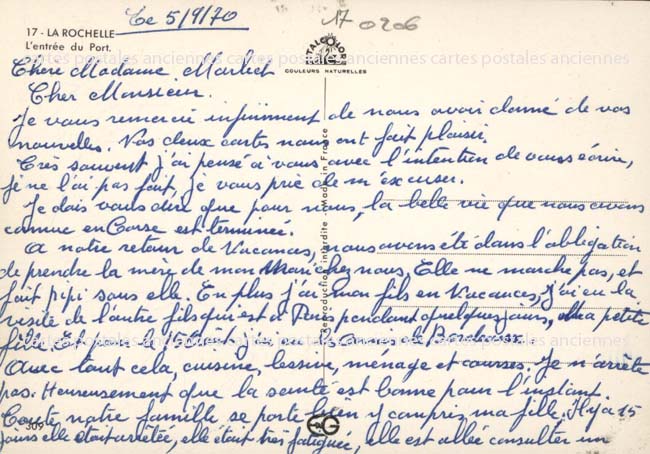 Le 5/9/70
17 0206
17 - LA ROCHELLE
L'entrée du Port.
COULEURS NATURELLES
cartes postales anciennes cartes postales anciennes cartes postales anciennes
Chère Madame Marbet
Cher Monsieur.
Je vous remercie infiniment de nous avoir donné de vos
nouvelles. Vos deux cartes nous ont fait plaisir.
Très souvent j'ai pensé à vous avec l'intention de vous écrire,
je ne l'ai pas fait, je vous prie de m'excuser.
Je dois vous dire que pour nous, la belle vie que nous avons
connue en Corse est terminée.
A notre retour de Vacances, nous avons été dans l'obligation
de prendre la mère de mon Mari chez nous, Elle ne marche pas, et
fait pipi sous elle. En plus j'ai mon fils en Vacances, j'ai eu la
visite de l'autre fils qui est à Paris, pendant quelques jours, ma petite
fille. Et pour le 15 Août j'ai eu les amis de Bordeaux
Avec tout cela, cuisine, lessive, ménage et courses. Je n'arrête
pas. Heureusement que la santé est bonne pour l'instant.
Toute notre famille se porte bien y compris ma fille, Il y a 15
jours elle était arrêtée, elle était très fatiguée, elle est allée consulter un
Reproduction interdite - Made in France
309